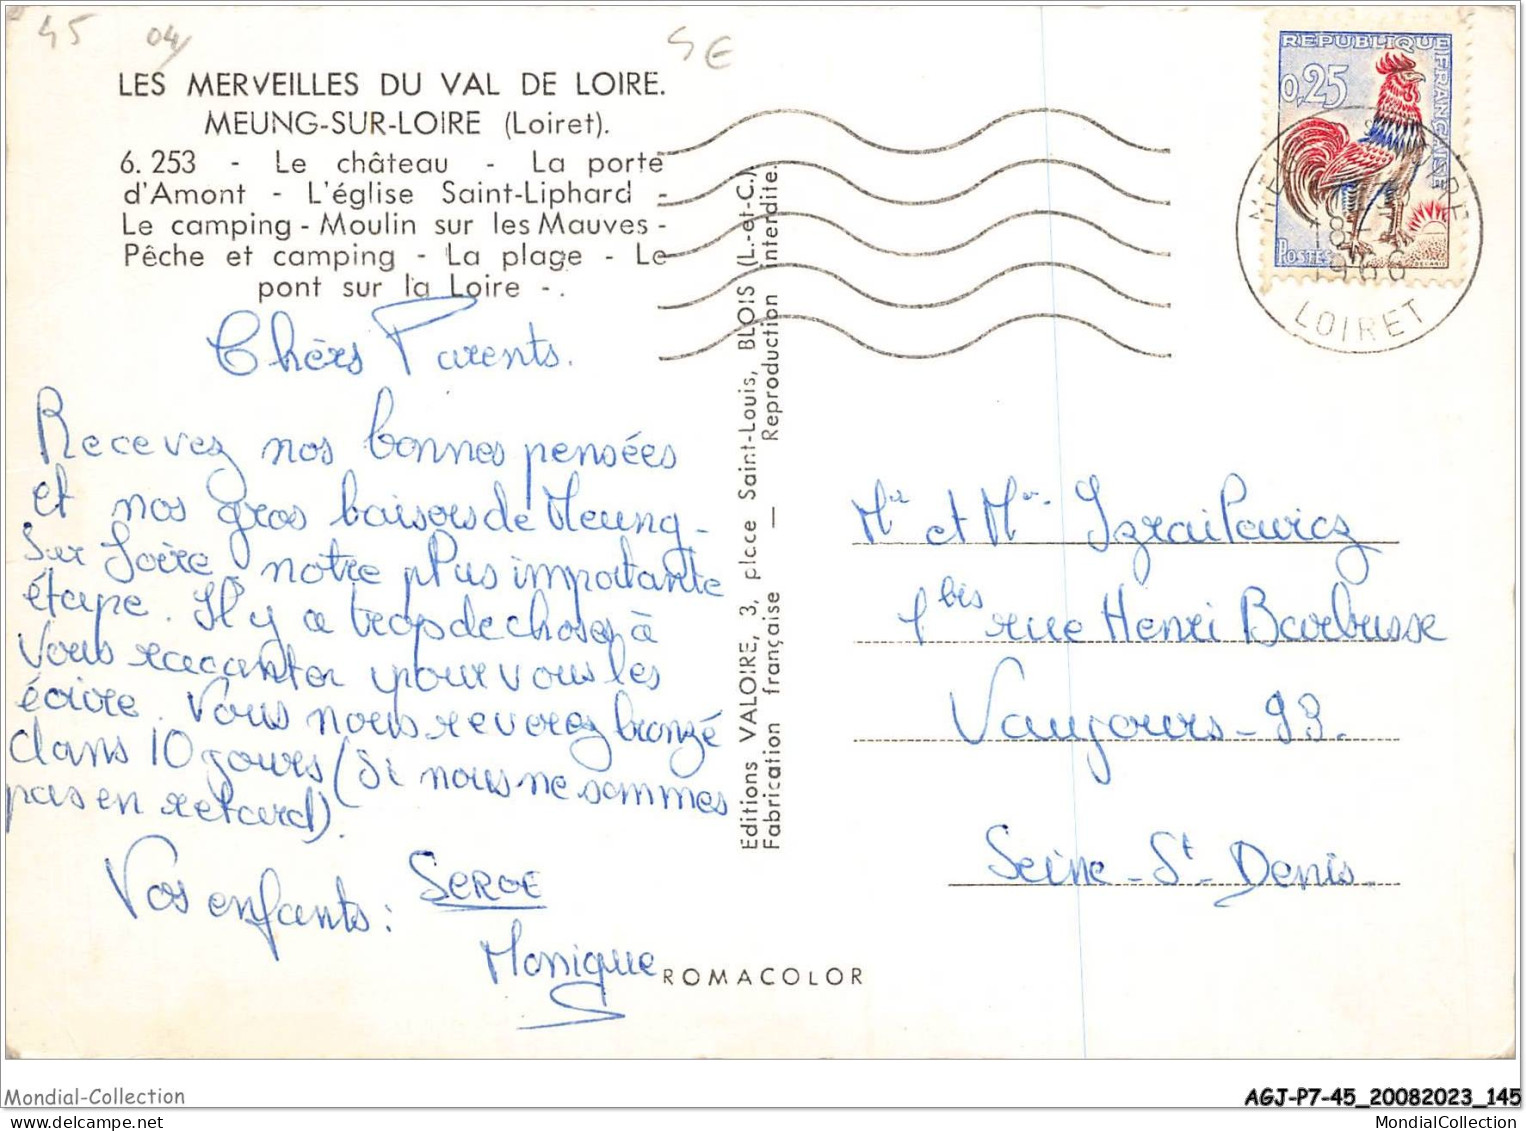 45 04
LES MERVEILLES DU VAL DE LOIRE.
MEUNG-SUR-LOIRE (Loiret).
6.253 - Le château - La porte
d'Amont - L'église Saint-Liphard -
Le camping - Moulin sur les Mauves -
Pêche et camping - La plage - Le
pont sur la Loire -.
Chers Parents.
Recevez nos bonnes pensées
et nos gros baisers de Meung-
sur Loire notre plus importante
étape. Il y a trop de choses à
vous raconter pour vous les
écrire. Vous nous reverez bronzé
dans 10 jours (si nous ne sommes
pas en retard).
Vos enfants : SERGE
Monique
Editions VALOIRE, 3, place Saint-Louis, BLOIS (L.-et-C.)
Fabrication française — Reproduction interdite.
ROMACOLOR
REPUBLIQUE FRANÇAISE
0,25
POSTES
DECARIS
18
1966
LOIRET
Mr et Mme Izrailewicz
1 bis rue Henri Barbusse
Vaujours - 93.
Seine - St - Denis.
Mondial-Collection
AGJ-P7-45_20082023_145
MondialCollection